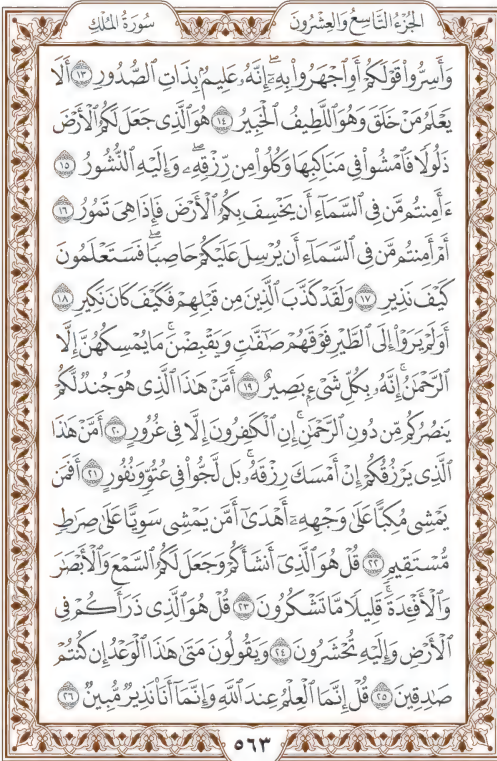 الجزء التاسع والعشرون سورة الملك
وَأَسِرُّوا۟ قَوْلَكُمْ أَوِ ٱجْهَرُوا۟ بِهِۦٓ ۖ إِنَّهُۥ عَلِيمٌۢ بِذَاتِ ٱلصُّدُورِ ١٣ أَلَا
يَعْلَمُ مَنْ خَلَقَ وَهُوَ ٱللَّطِيفُ ٱلْخَبِيرُ ١٤ هُوَ ٱلَّذِى جَعَلَ لَكُمُ ٱلْأَرْضَ
ذَلُولًا فَٱمْشُوا۟ فِى مَنَاكِبِهَا وَكُلُوا۟ مِن رِّزْقِهِۦ ۖ وَإِلَيْهِ ٱلنُّشُورُ ١٥
ءَأَمِنتُم مَّن فِى ٱلسَّمَآءِ أَن يَخْسِفَ بِكُمُ ٱلْأَرْضَ فَإِذَا هِىَ تَمُورُ ١٦
أَمْ أَمِنتُم مَّن فِى ٱلسَّمَآءِ أَن يُرْسِلَ عَلَيْكُمْ حَاصِبًا ۖ فَسَتَعْلَمُونَ
كَيْفَ نَذِيرِ ١٧ وَلَقَدْ كَذَّبَ ٱلَّذِينَ مِن قَبْلِهِمْ فَكَيْفَ كَانَ نَكِيرِ ١٨
أَوَلَمْ يَرَوْا۟ إِلَى ٱلطَّيْرِ فَوْقَهُمْ صَٰٓفَّٰتٍ وَيَقْبِضْنَ ۚ مَا يُمْسِكُهُنَّ إِلَّا
ٱلرَّحْمَٰنُ ۚ إِنَّهُۥ بِكُلِّ شَىْءٍۭ بَصِيرٌ ١٩ أَمَّنْ هَٰذَا ٱلَّذِى هُوَ جُندٌ لَّكُمْ
يَنصُرُكُم مِّن دُونِ ٱلرَّحْمَٰنِ ۚ إِنِ ٱلْكَٰفِرُونَ إِلَّا فِى غُرُورٍ ٢٠ أَمَّنْ هَٰذَا
ٱلَّذِى يَرْزُقُكُمْ إِنْ أَمْسَكَ رِزْقَهُۥ ۚ بَل لَّجُّوا۟ فِى عُتُوٍّ وَنُفُورٍ ٢١ أَفَمَن
يَمْشِى مُكِبًّا عَلَىٰ وَجْهِهِۦٓ أَهْدَىٰٓ أَمَّن يَمْشِى سَوِيًّا عَلَىٰ صِرَٰطٍ
مُّسْتَقِيمٍ ٢٢ قُلْ هُوَ ٱلَّذِىٓ أَنشَأَكُمْ وَجَعَلَ لَكُمُ ٱلسَّمْعَ وَٱلْأَبْصَٰرَ
وَٱلْأَفْـِٔدَةَ ۖ قَلِيلًا مَّا تَشْكُرُونَ ٢٣ قُلْ هُوَ ٱلَّذِى ذَرَأَكُمْ فِى
ٱلْأَرْضِ وَإِلَيْهِ تُحْشَرُونَ ٢٤ وَيَقُولُونَ مَتَىٰ هَٰذَا ٱلْوَعْدُ إِن كُنتُمْ
صَٰدِقِينَ ٢٥ قُلْ إِنَّمَا ٱلْعِلْمُ عِندَ ٱللَّهِ وَإِنَّمَآ أَنَا۠ نَذِيرٌ مُّبِينٌ ٢٦
٥٦٣